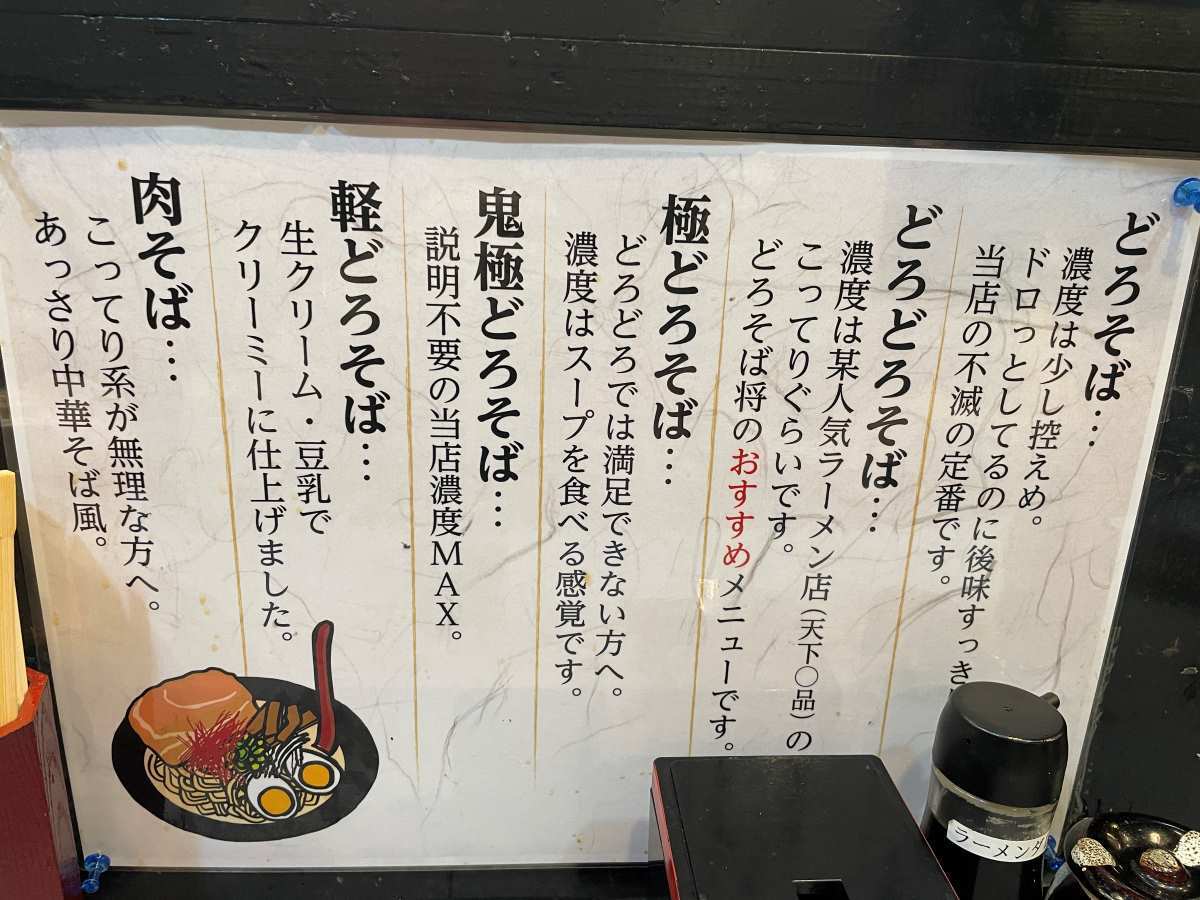 どろそば…
濃度は少し控えめ。
ドロっとしてるのに後味すっき
当店の不滅の定番です。
どろどろそば…
濃度は某人気ラーメン店(天下〇品)の
こってりぐらいです。
どろそば将のおすすめメニューです。
極どろそば…
どろどろでは満足できない方へ。
濃度はスープを食べる感覚です。
鬼極どろそば…
説明不要の当店濃度MAX。
軽どろそば…
生クリーム・豆乳で
クリーミーに仕上げました。
肉そば…
こってり系が無理な方へ。
あっさり中華そば風。
ラーメン